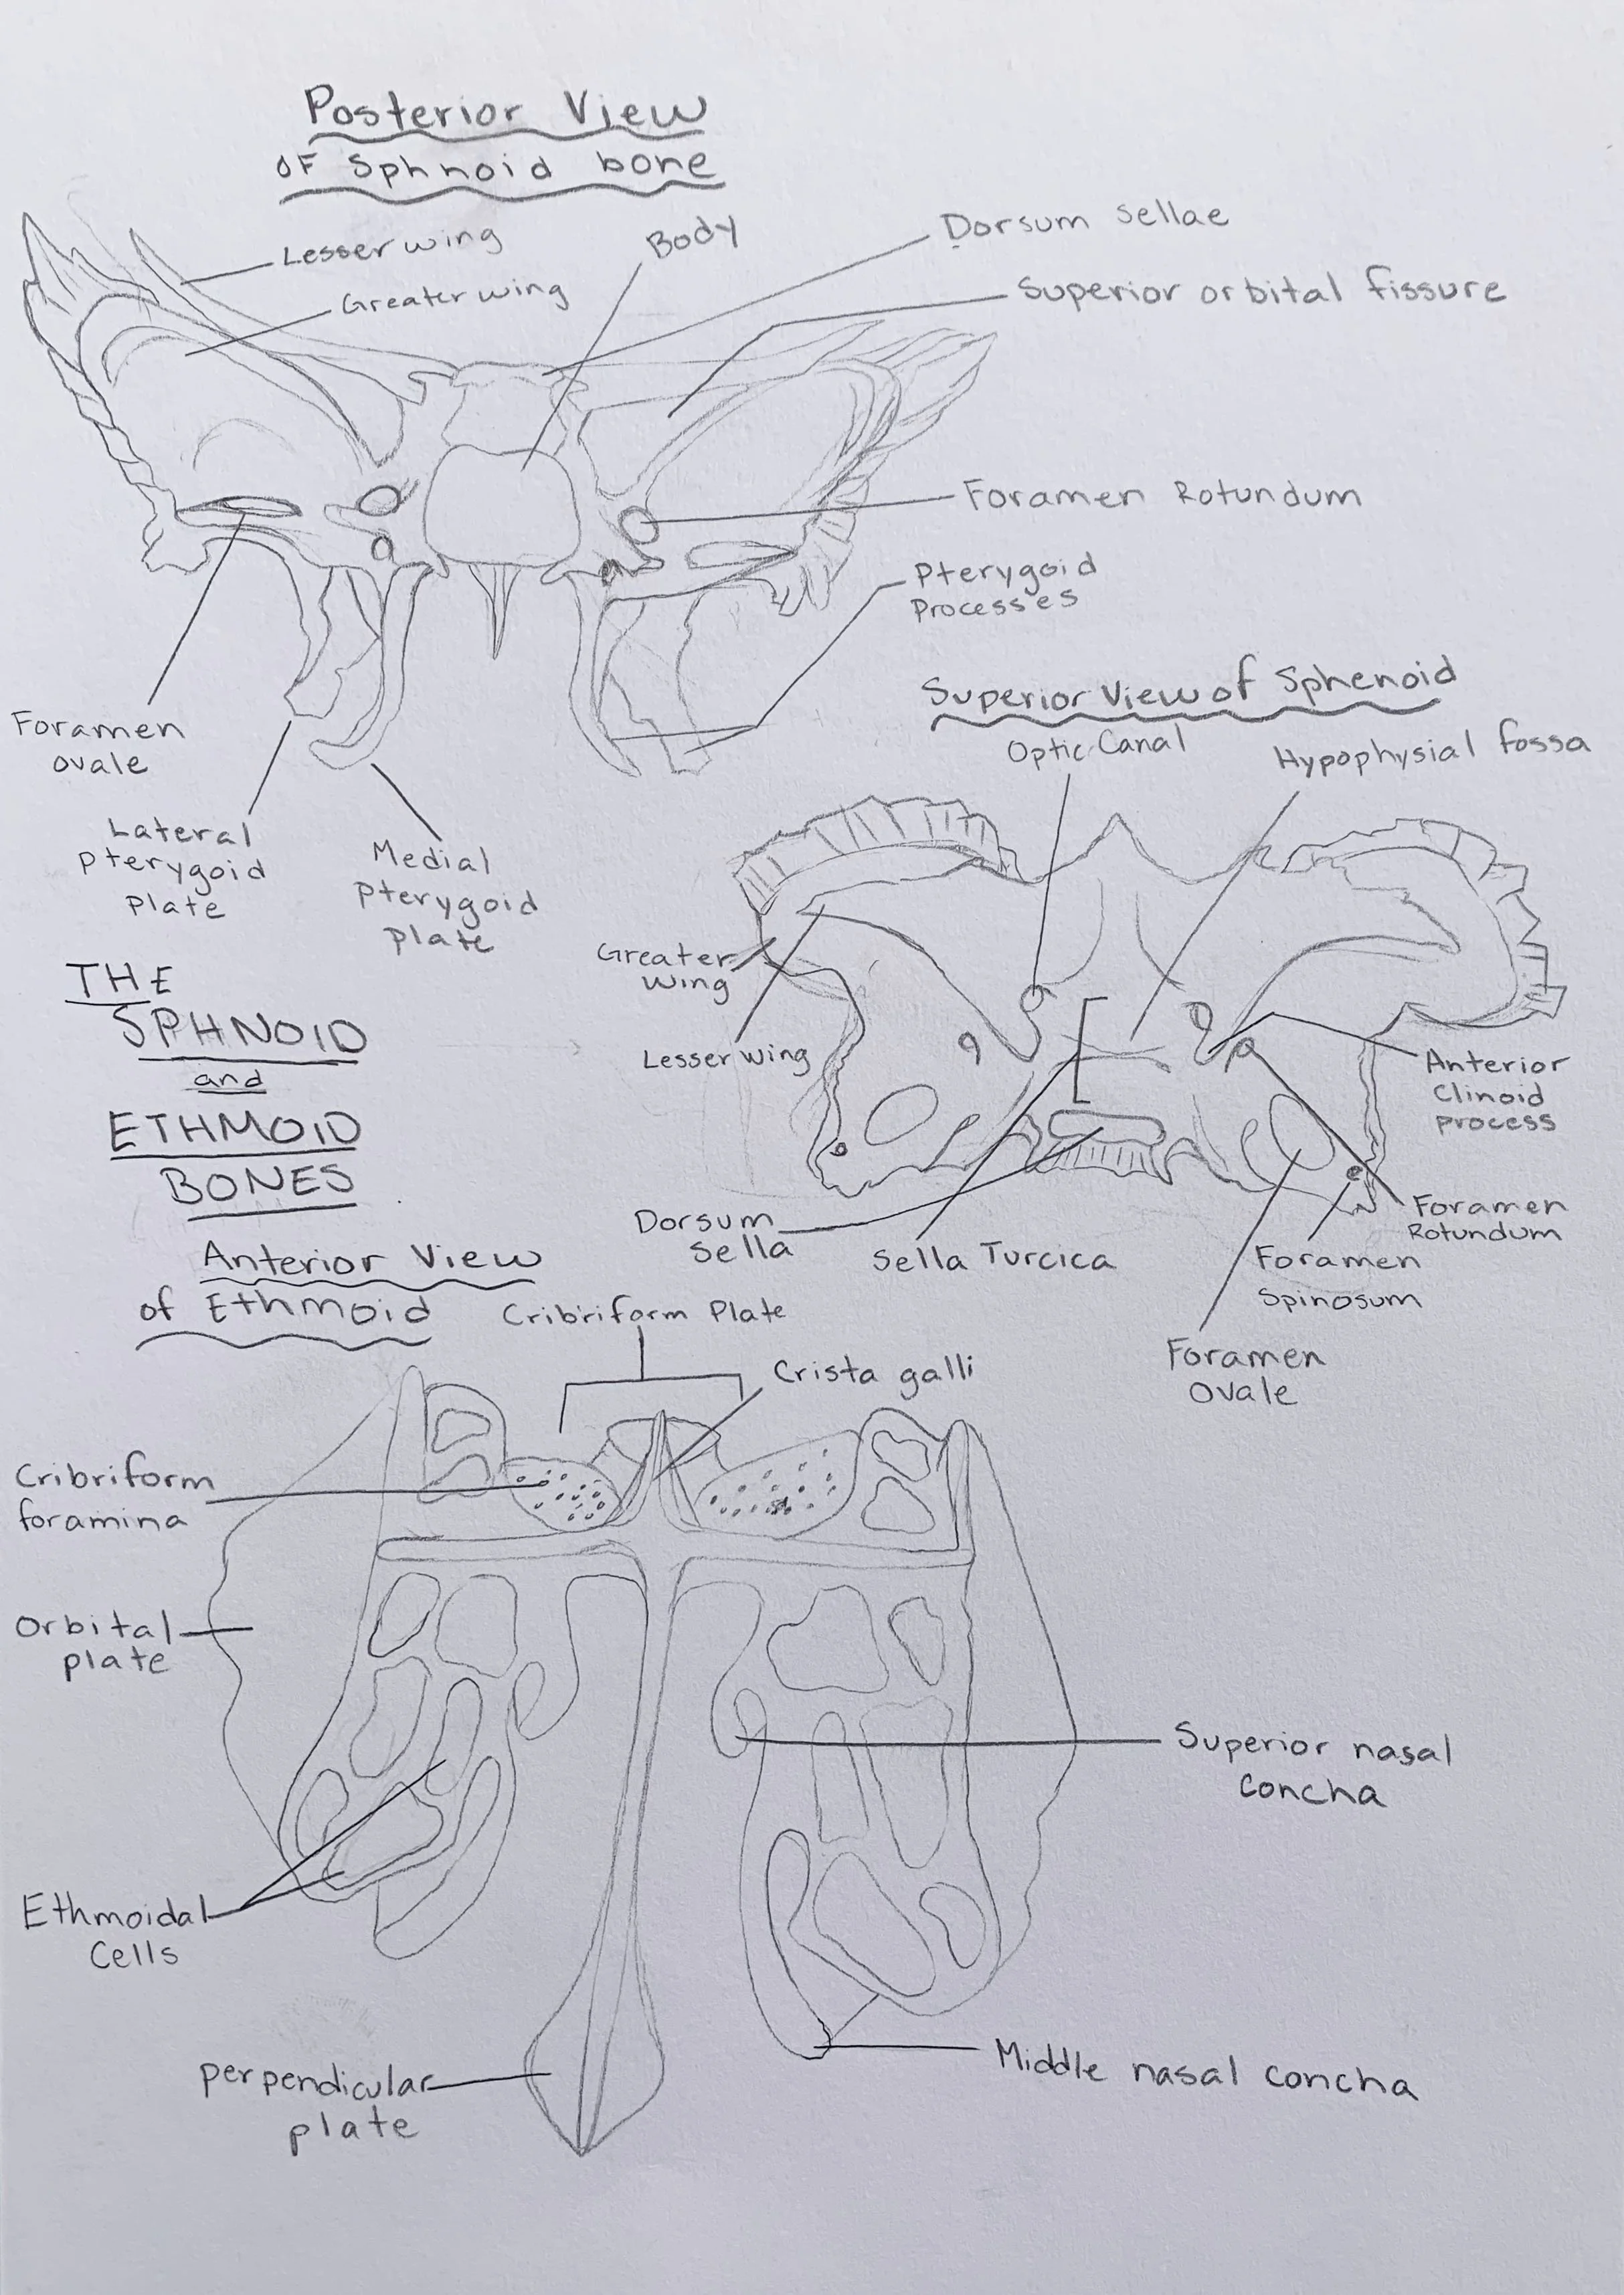 Posterior View
OF Sphnoid bone
Lesser wing
Greater wing
Body
Dorsum sellae
Superior orbital fissure
Foramen Rotundum
Pterygoid
Processes
Foramen
ovale
Lateral
pterygoid
Plate
Medial
pterygoid
plate
Superior View of Sphenoid
Optic Canal
Hypophysial fossa
Greater
wing
Lesser wing
Anterior
Clinoid
process
Dorsum
Sella
Sella Turcica
Foramen
Rotundum
Foramen
Spinosum
Foramen
Ovale
THE
SPHNOID
and
ETHMOID
BONES
Anterior View
of Ethmoid
Cribriform Plate
Crista galli
Cribriform
foramina
Orbital
plate
Superior nasal
Concha
Ethmoidal
Cells
Perpendicular
plate
Middle nasal concha